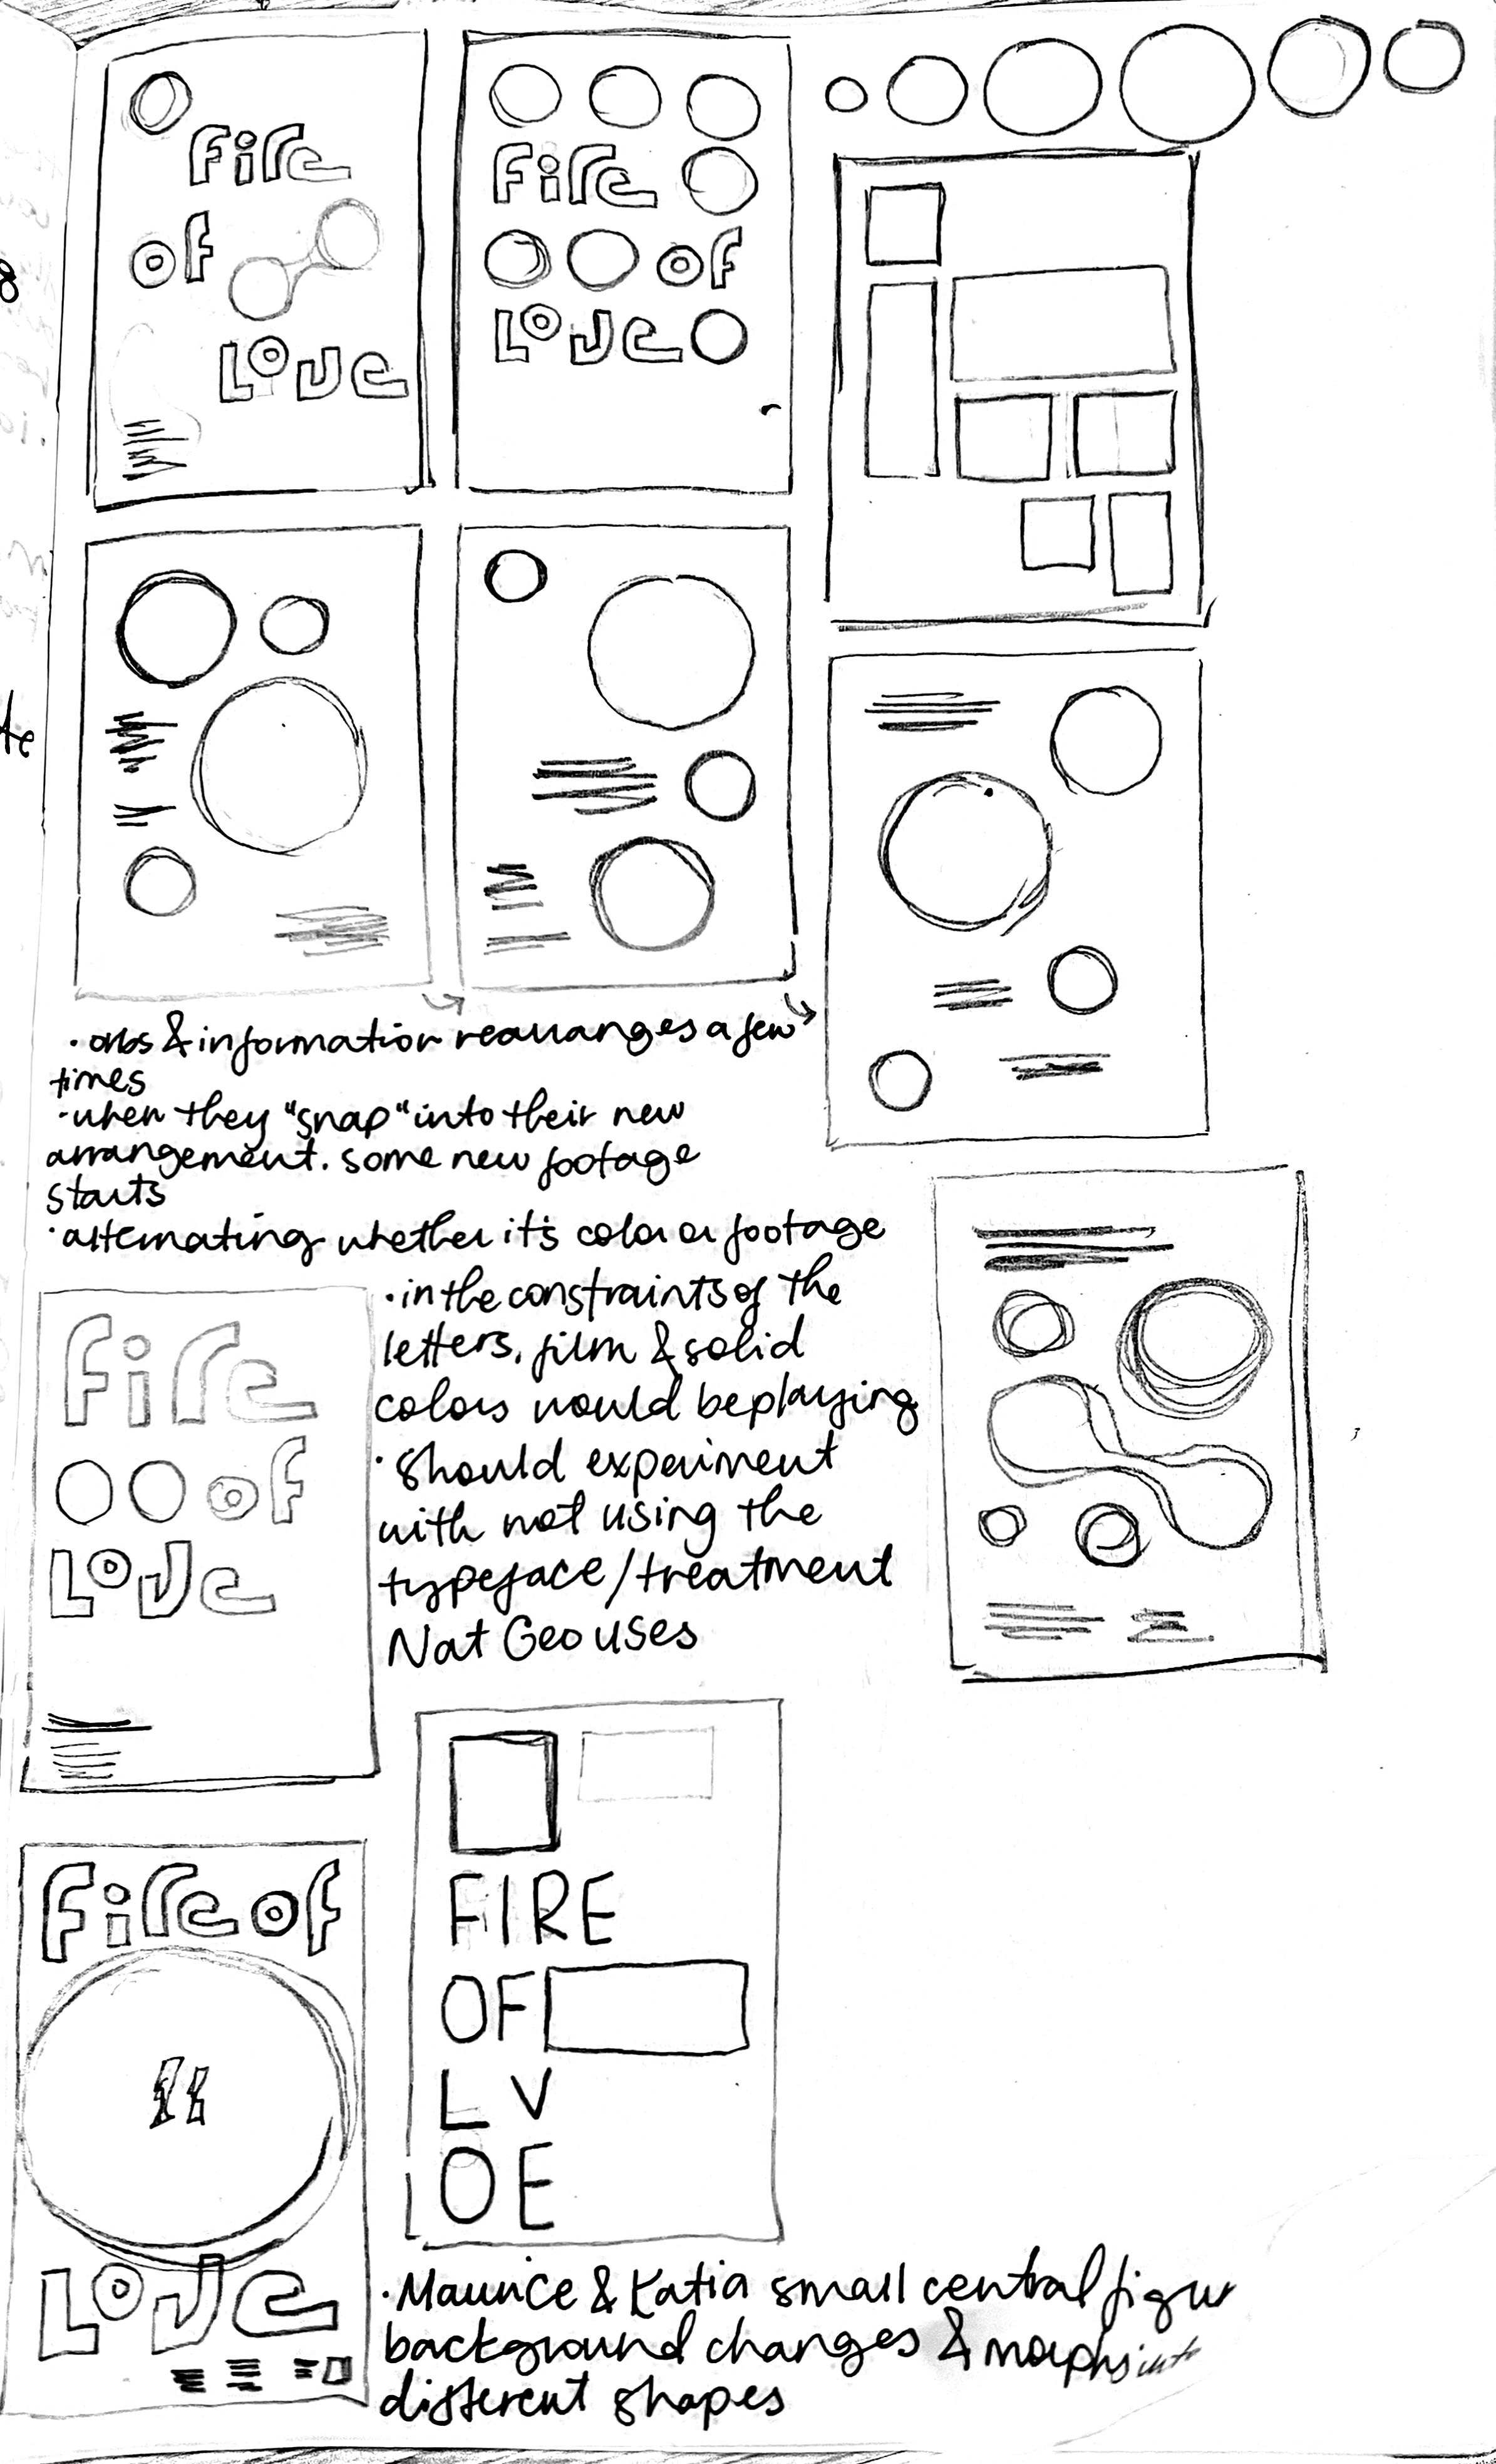 fire
of
Love
fire
of
Love
• orbs & information rearranges a few
times
• when they "snap" into their new
arrangement. some new footage
starts
• alternating whether it's color or footage
fire
of
Love
• in the constraints of the
letters, film & solid
colors would be playing
• should experiment
with not using the
typeface/treatment
Nat Geo uses
fire of
Love
FIRE
OF
L V
O E
• Maurice & Katia small central figur
background changes & morphs into
different shapes